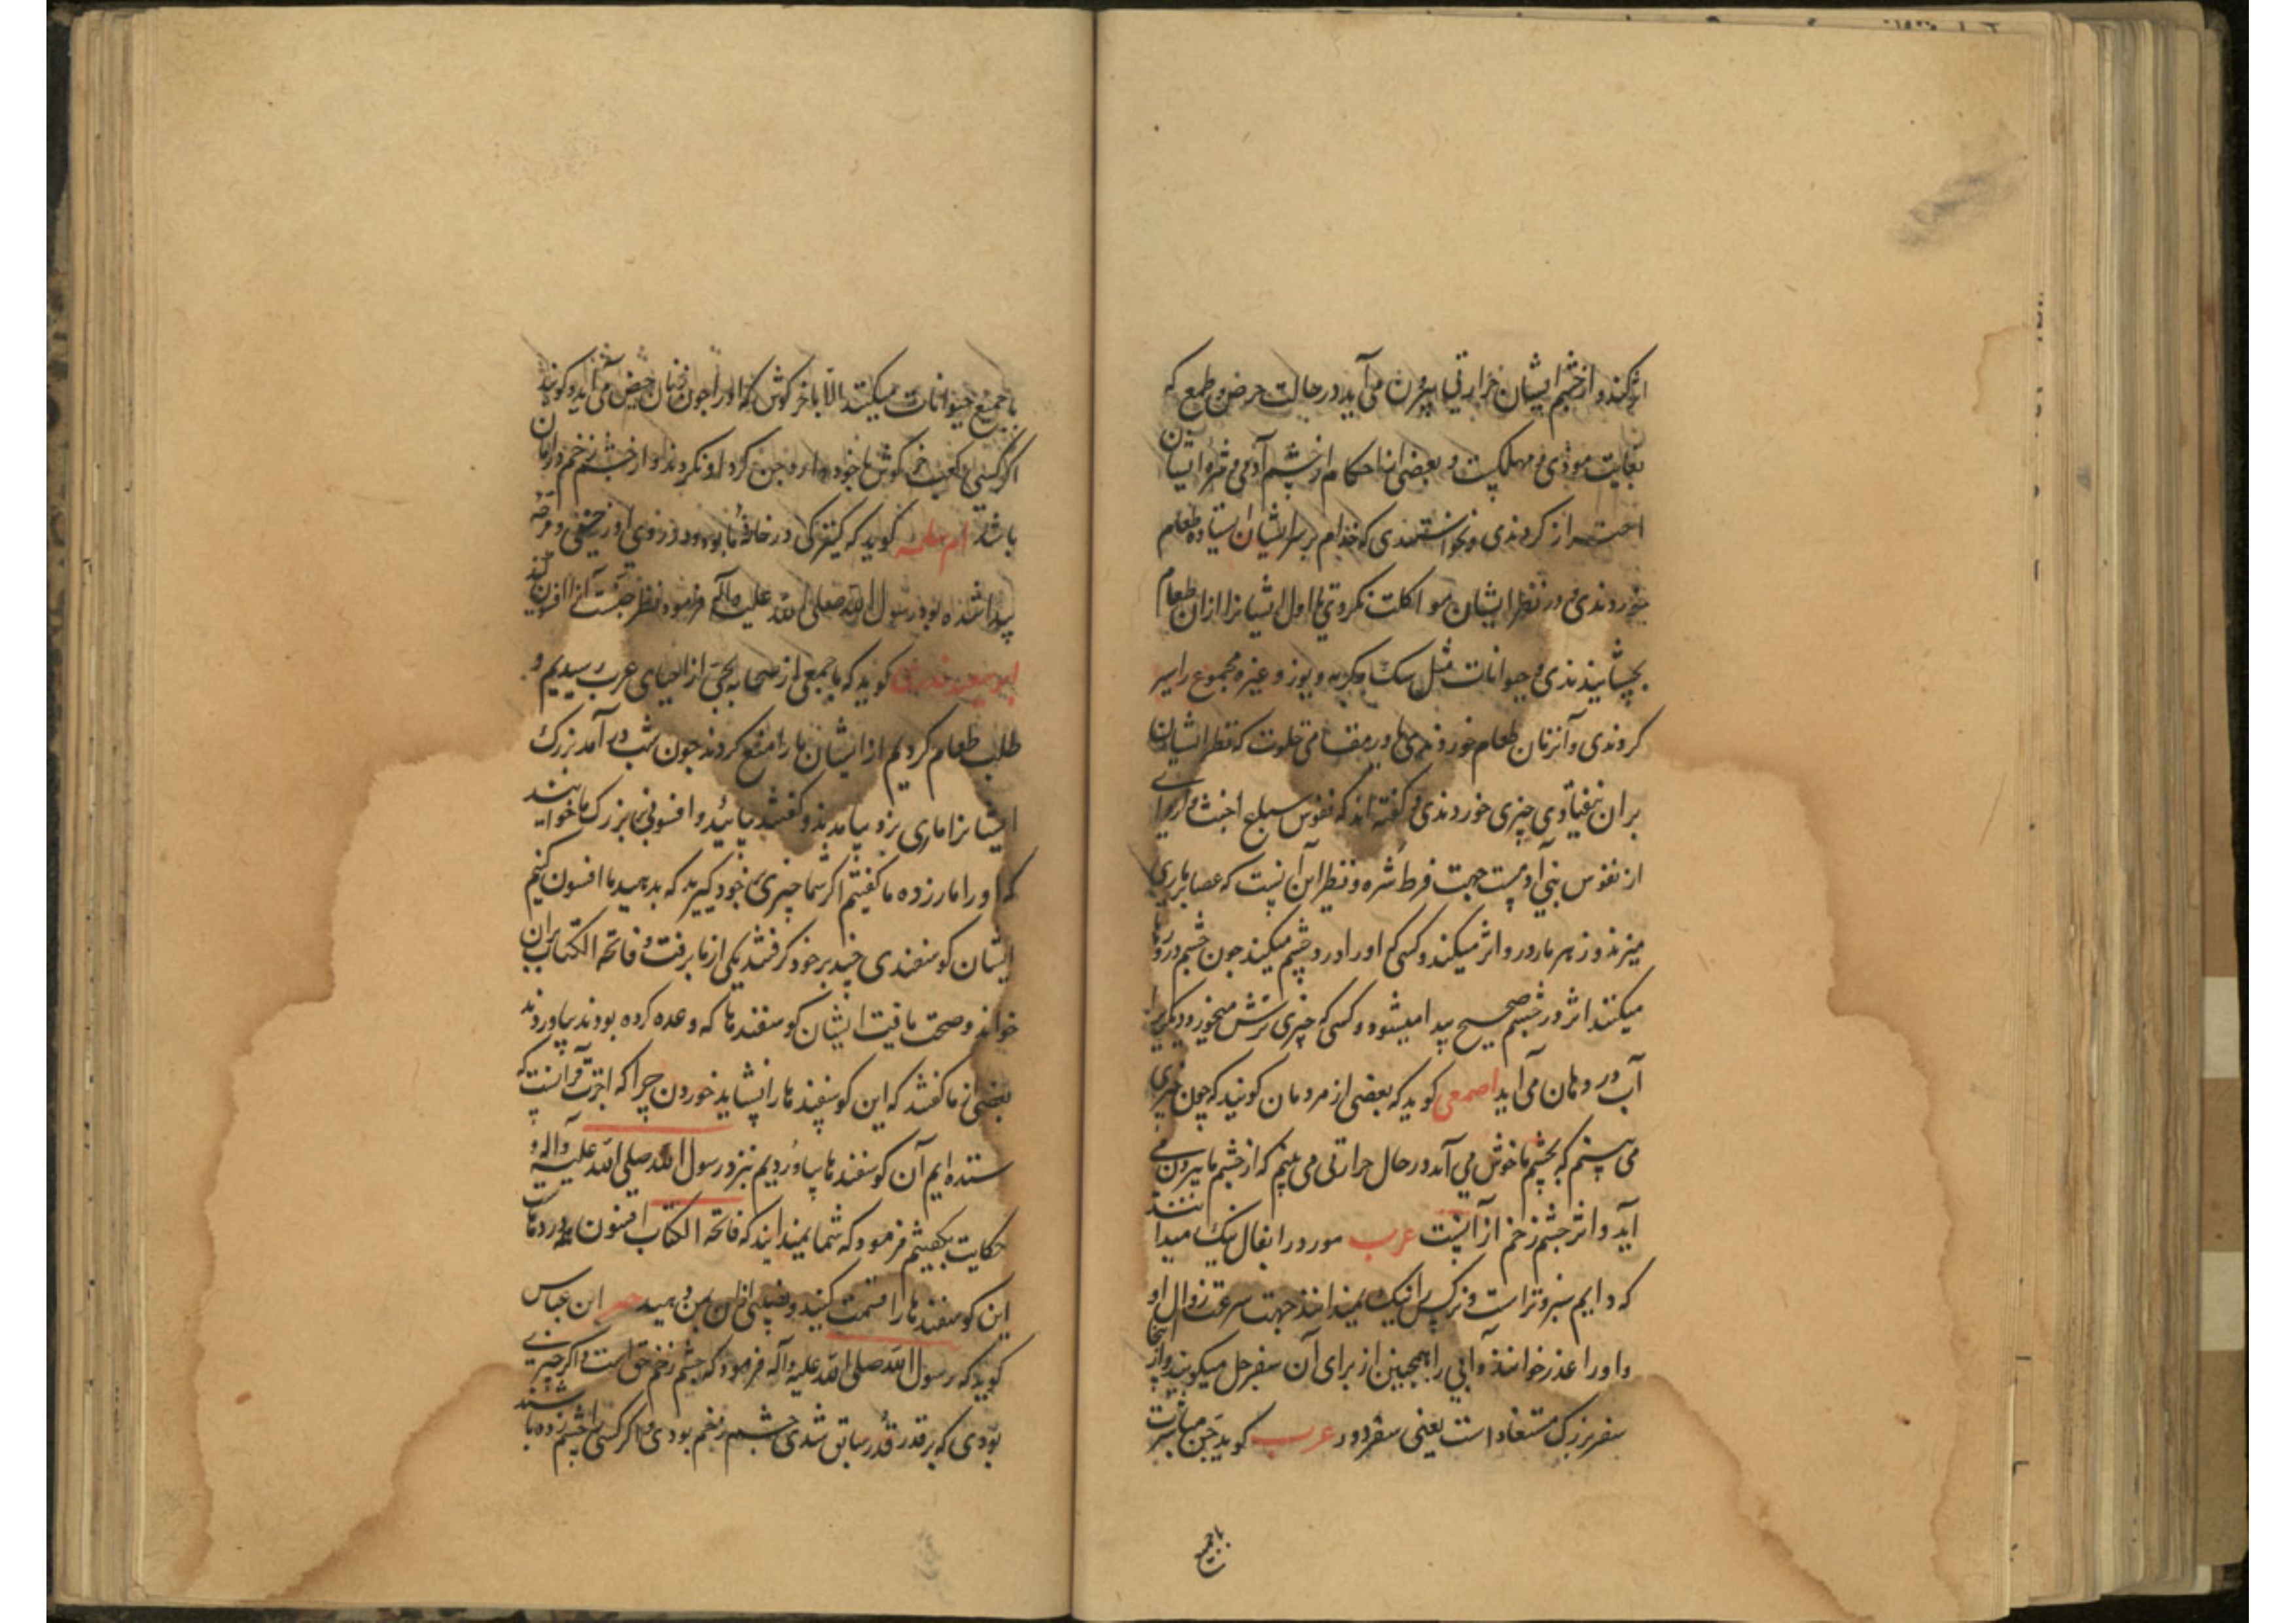 اثر کند و از چشم ایشان حرارتی بیرون می آید در حالت حرص و طمع که
بغایت موذی و مهلکست و بعضی از احکام از چشم آدمی و غیر ایشان
احتراز کردندی و نخواستندی که خدام بر سر ایشان ایستاده طعام
خوردندی و در نظر ایشان مواکلت نکردندی یا اول ایشانرا از ان طعام
بچشانیدندی و حیوانات مثل سک و کربه و یوز و غیره مجموع را سیر
کردندی و آنزمان طعام خوردندی یا در مقامی خلوت که نظر ایشان
بران نیفتادی چیزی خوردندی و کفته اند که نفوس سباع اخبث و اردا
از نفوس بنی آدمست جهت فرط شره و نظیر این آنست که عصا بر ماری
میزند و زهر مار در و اثر میکند و کسی که او را درد چشم میکند جون چشم در
میکنند اثر در چشم صحیح پیدا میشود و کسی که چیزی ترش میخورد دیکریرا
آب در دهان می آید اصمعی کوید که بعضی از مردمان کویند که چون چیزی
می بینم که بچشم ما خوش می آید در حال حرارتی می بینم که از چشم ما بیرون می
آید و اثر چشم زخم از آنست عرب مورد را بفال نیک میدانند
که دایم سبز و تر است و نرکس را نیک نمیدانند جهت سرعت زوال او
و او را عذر خوانند و آبی را همچنین از برای آن سفرجل میکویند و از اینجا
سفر بزرک مستفاد است یعنی سفر دور عرب کوید جن مباشرت
باجمیع
باجمیع حیوانات میکنند الا با خرکوش که او را جون زنان حیض می آید و کویند
اکر کسی کعب خرکوش با خود دارد جن کرد او نکردند و از چشم زخم در امان
باشد ام سلمه کوید که کنیزکی در خانه ما بود و در روی او زخمی و قرحه
پیدا شده بود رسول الله صلی الله علیه و آله فرمود نظر جنست آنرا افسون کنید
ابو سعید خدری کوید که با جمعی از صحابه بحیی از احیای عرب رسیدیم و
طلب طعام کردیم از ایشان ما را منع کردند جون شب در آمد بزرک
ایشانرا ماری بزد بیامدند و کفتند بیائید و افسونی بر بزرک ما خوانید
که او را مار زده ما کفتیم اکر شما چیزی بر خود کیرید که بدهید ما افسون کنیم
ایشان کوسفندی چند بر خود کرفتند یکی از ما برفت و فاتحة الکتاب بران
خواند و صحت یافت ایشان کوسفندها که وعده کرده بودند بیاوردند
بعضی از ما کفتند که این کوسفندها را نشاید خوردن چرا که اجرت قرآنست که
ستده ایم آن کوسفندها بیاوردیم نزد رسول الله صلی الله علیه و آله و
حکایت بکفتیم فرمود که شما نمیدانید که فاتحة الکتاب افسون همه دردهاست
این کوسفندها را قسمت کنید و نصیبی از ان بمن دهید ابن عباس
کوید که رسول الله صلی الله علیه و آله فرمود که چشم زخم حق است و اکر چیزی
بودی که بر قدر سابق شدی چشم زخم بودی و اکر کسی را چشم زده باشند